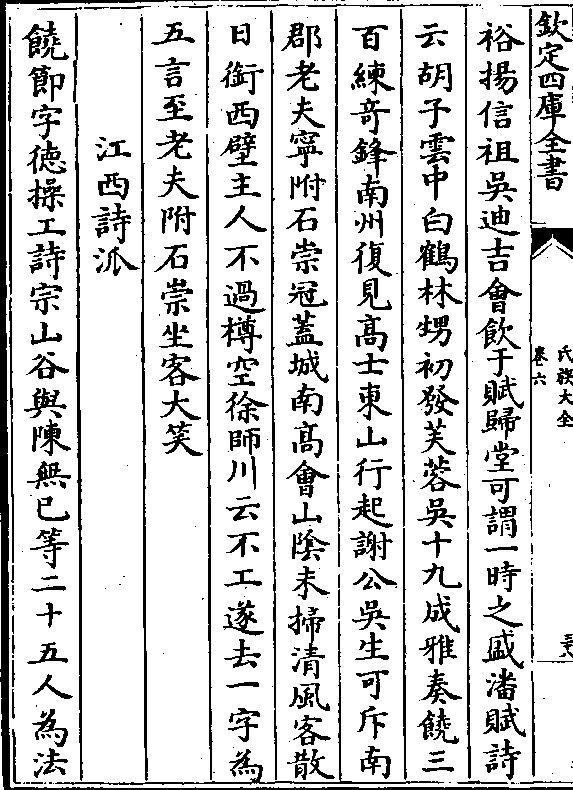 欽定四庫全書
氏族大全
卷六
裕揚信祖吳迪吉會飲于賦歸堂可謂一時之盛潘賦詩
云胡子雲中白鶴林甥初發芙蓉吳十九成雅奏饒三
百練竒鋒南州復見髙士東山行起謝公吳生可斥南
郡老夫寧附石崇冠蓋城南髙會山隂未掃清風客散
日銜西壁主人不過樽空徐師川云不工遂去一字為
五言至老夫附石崇坐客大笑
江西詩派
饒節字徳操工詩宗山谷與陳無已等二十五人為法